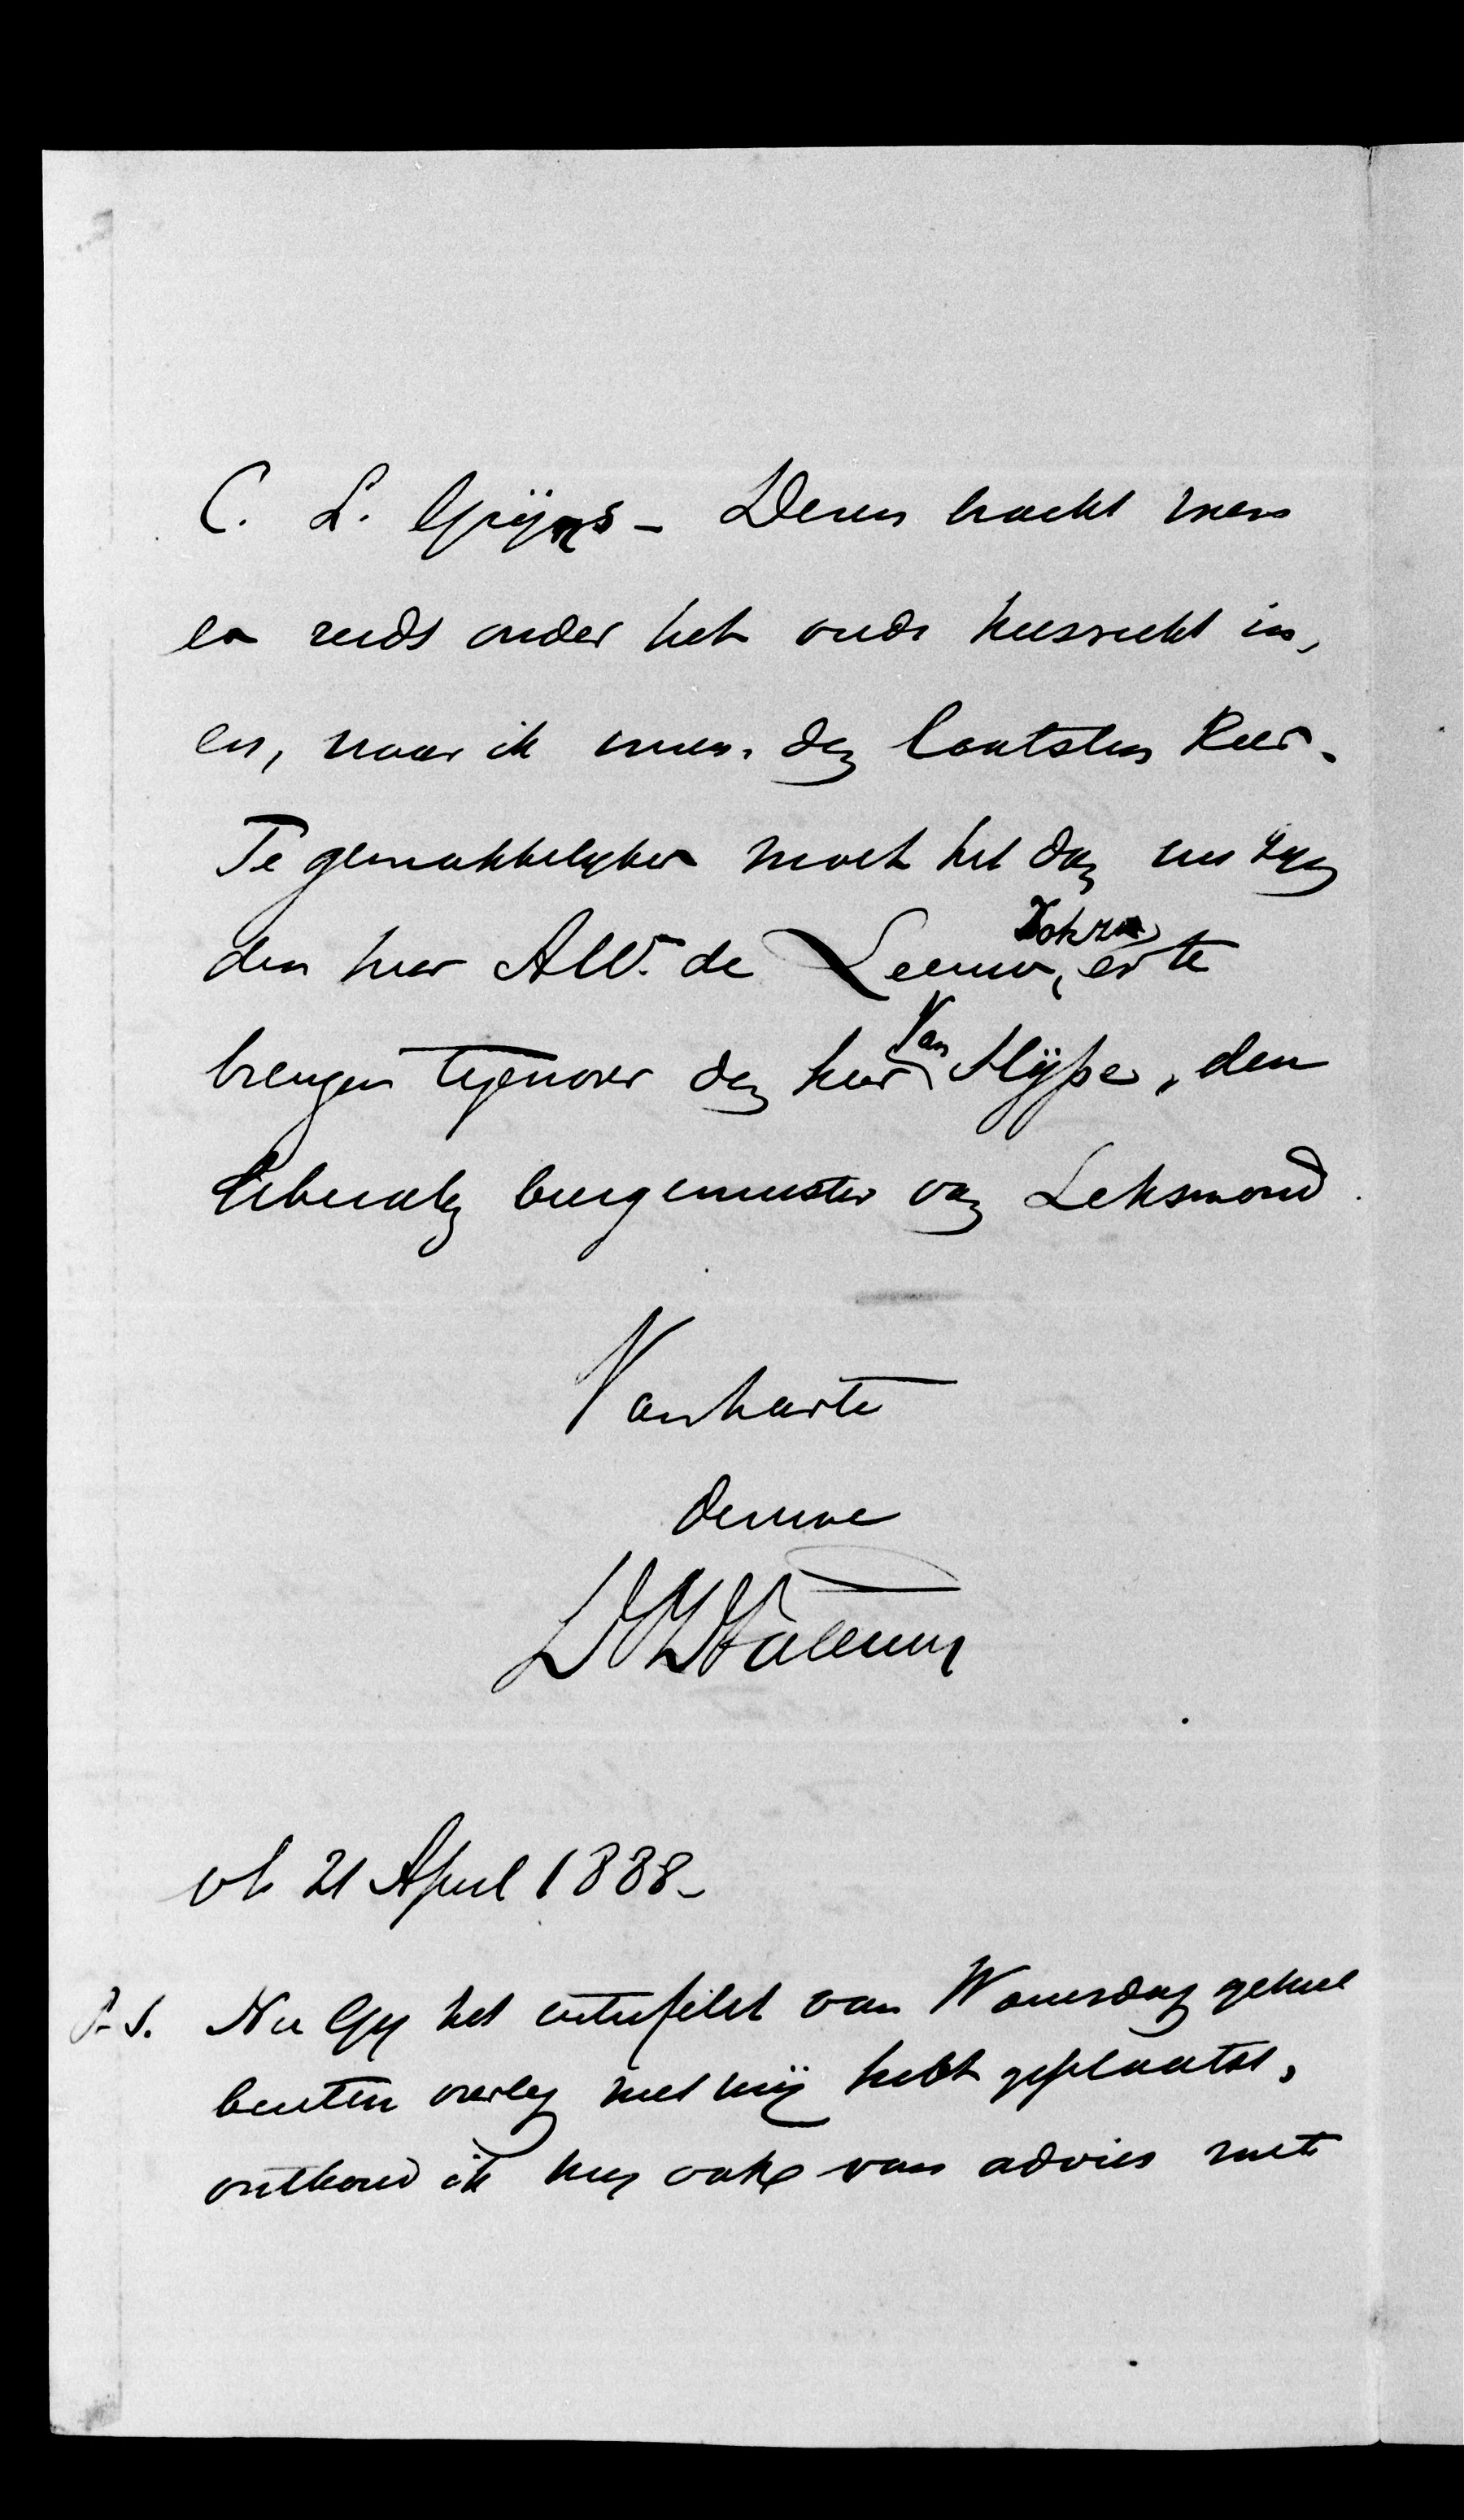 C. L. Gijs - Dezen bracht men
er reeds onder het oude kiesrecht in,
en, naar ik meen, den laatsten keer.
Te gemakkelijker moet het dan nu zijn
den heer A.W. de Leeuw, Johzn er te
brengen tegenover den heer Van Slijpe, den
liberalen burgemeester van Leksmond.
Van harte
de uwe
21 April 1888-
P.S. Nu Gij het entrefilet van Woensdag geheel
buiten overleg met mij hebt geplaatst,
onthoud ik mij ook van advies